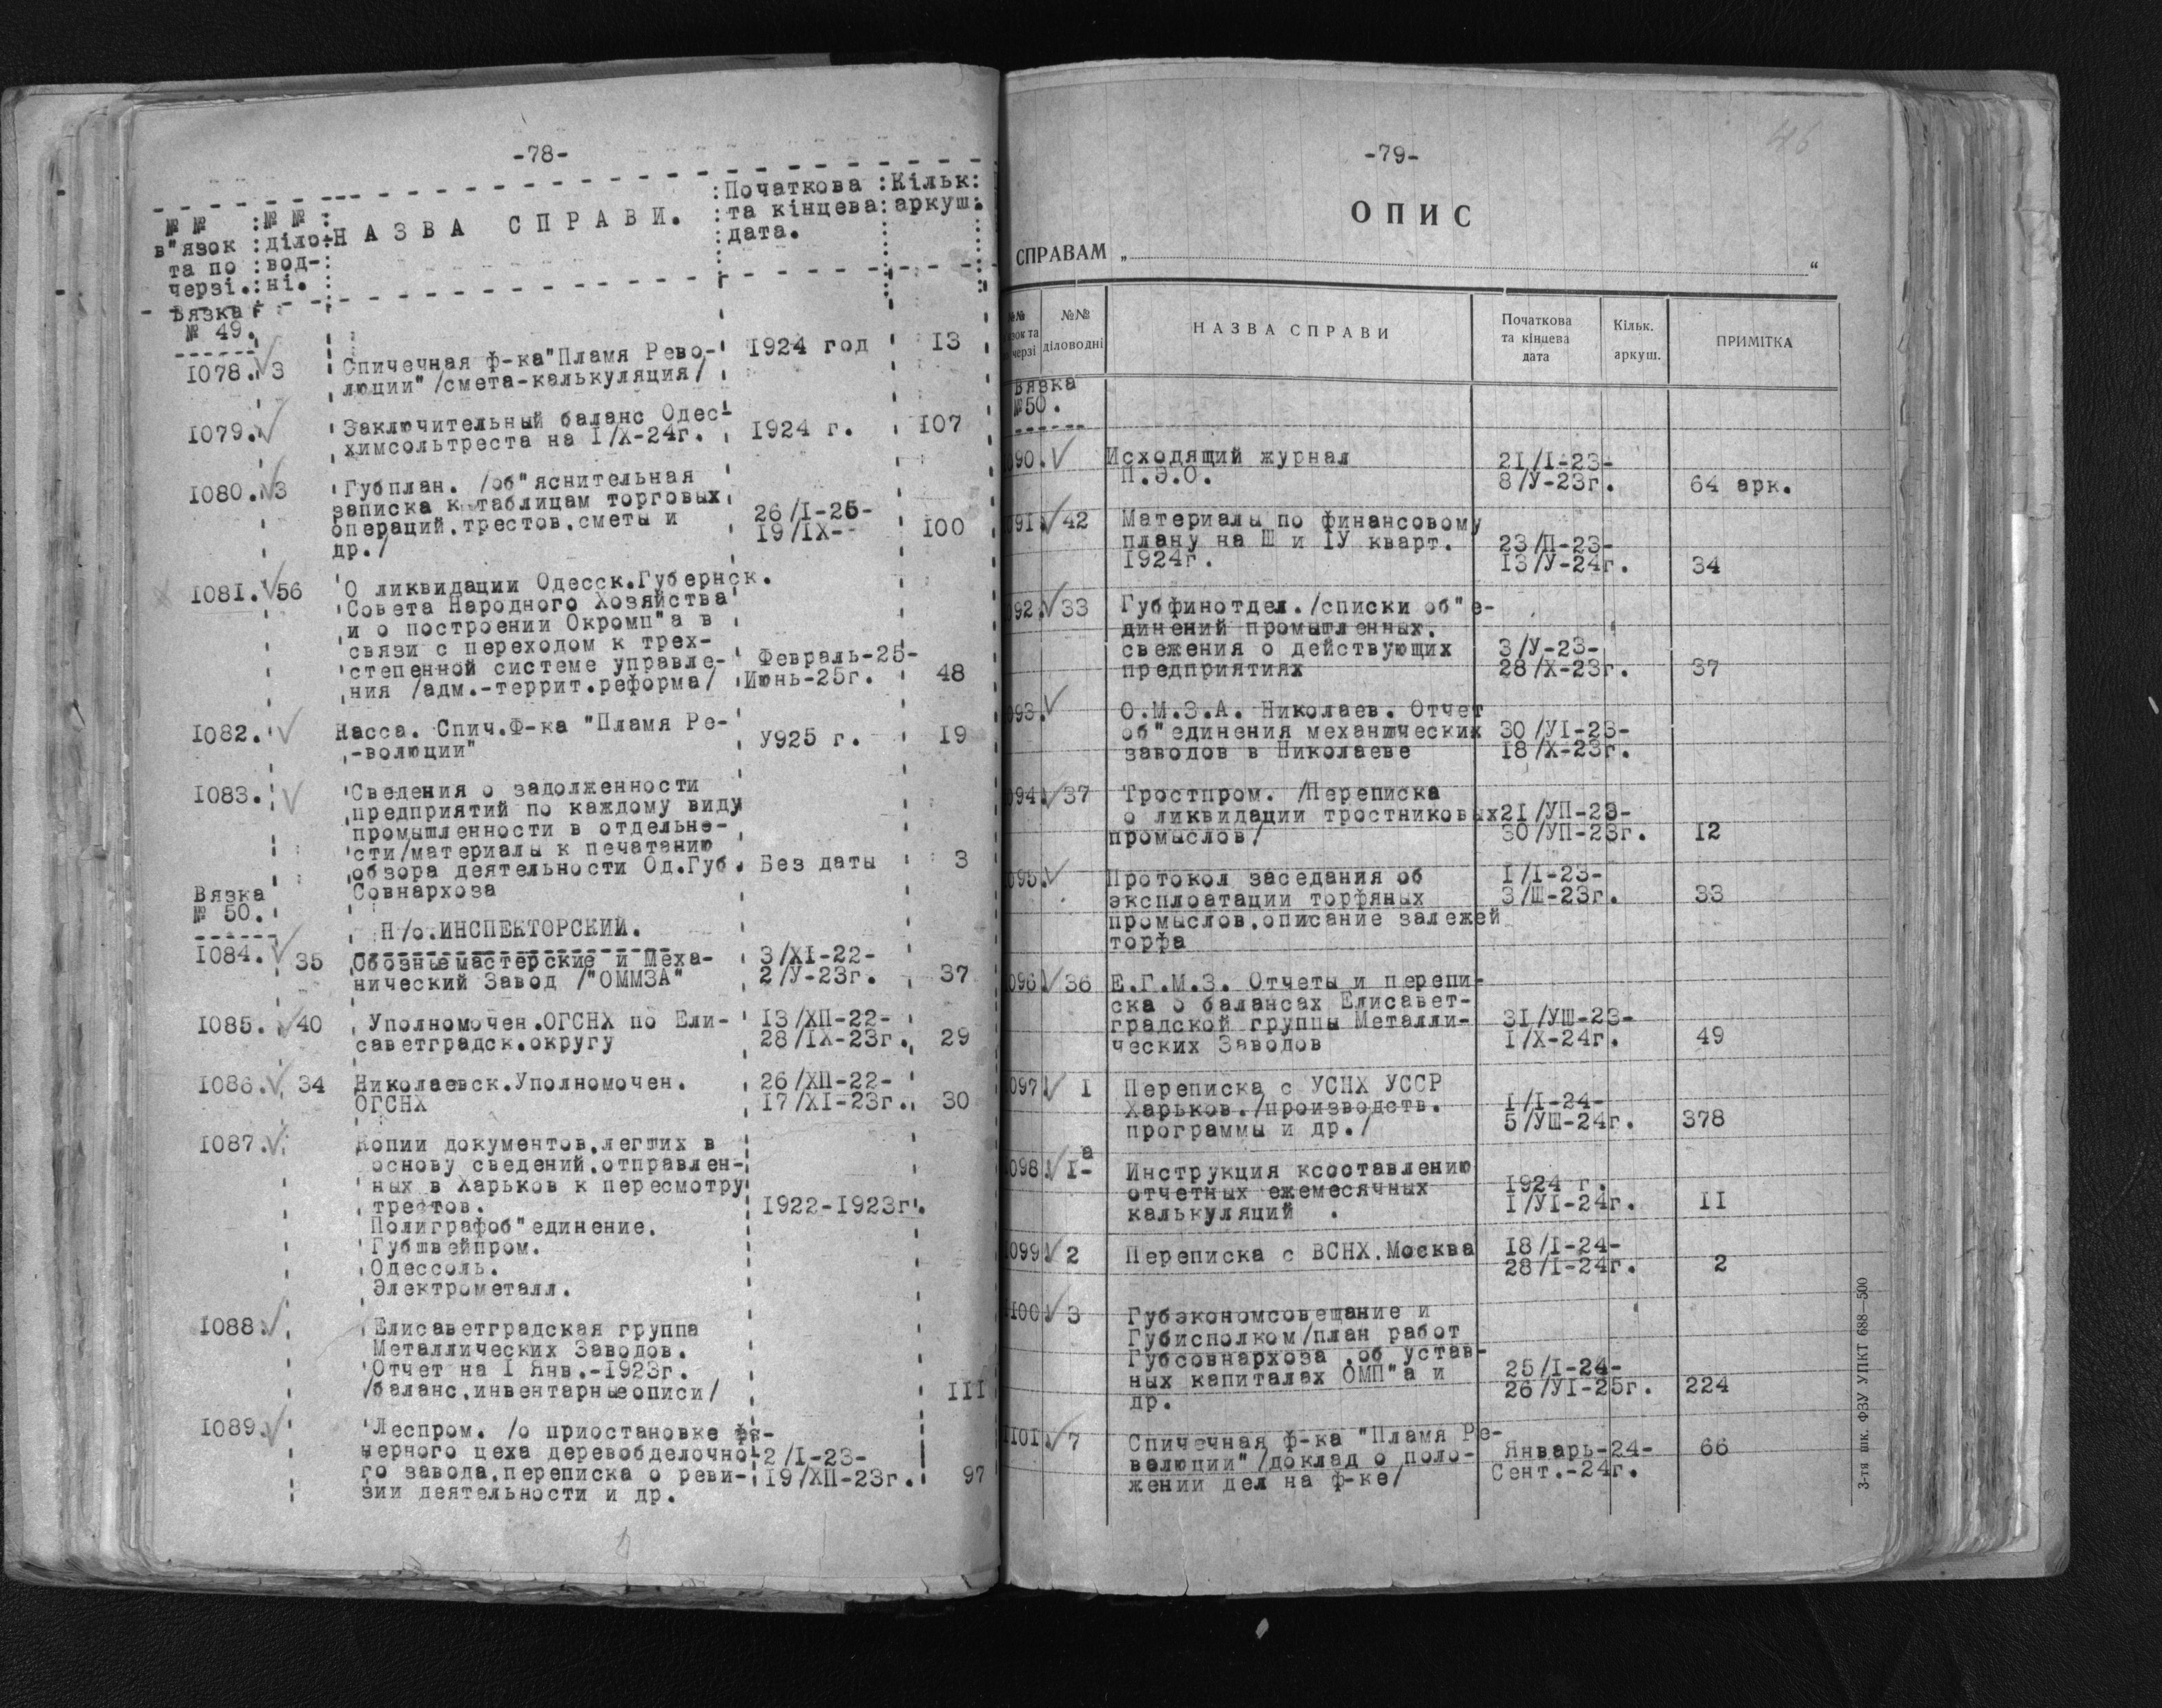 -78-
№ № :№ №: НАЗВА СПРАВИ. :Початкова :Кільк:
в"язок :діло-: :та кінцева:аркуш:
та по :вод-: :дата.
черзі.:ні.
Вязка
№ 49.
1078. 3 Спичечная ф-ка"Пламя Рево- 1924 год 13
люции" /смета-калькуляция/
1079. Заключительный баланс Одес-
химсольтреста на I/X-24г. 1924 г. 107
1080. 3 Губплан. /об"яснительная
записка к таблицам торговых
операций,трестов,сметы и 26/I-25-
др./ 19/IX-- 100
1081. 56 О ликвидации Одесск.Губернск.
Совета Народного Хозяйства
и о построении Окромп"а в
связи с переходом к трех-
степенной системе управле- Февраль-25-
ния /адм.-террит.реформа/ Июнь-25г. 48
1082. Касса. Спич.Ф-ка "Пламя Ре-
-волюции" У925 г. 19
1083. Сведения о задолженности
предприятий по каждому виду
промышленности в отдельно-
сти/материалы к печатанию
обзора деятельности Од.Губ. Без даты 3
Совнархоза
Вязка
№ 50.
П/о.ИНСПЕКТОРСКИЙ.
1084. 35 Обозныемастерские и Меха- 3/XI-22-
нический Завод /"ОММЗА" 2/У-23г. 37
1085. 40 Уполномочен.ОГСНХ по Ели- 13/ХП-22-
саветградск.округу 28/IX-23г. 29
1086. 34 Николаевск.Уполномочен. 26/ХП-22-
ОГСНХ 17/XI-23г. 30
1087. Копии документов,легших в
основу сведений,отправлен-
ных в Харьков к пересмотру
трестов. 1922-1923г.
Полиграфоб"единение.
Губшвейпром.
Одессоль.
Электрометалл.
1088. Елисаветградская группа
Металлических Заводов.
Отчет на I Янв.-1923г.
/баланс,инвентарныеописи/ 111
1089. Леспром. /о приостановке фа-
нерного цеха деревобделочно- 2/I-23-
го завода,переписка о реви- 19/ХП-23г. 97
зии деятельности и др.
-79-
46
ОПИС
СПРАВАМ „ “
№№ №№ НАЗВА СПРАВИ Початкова Кільк. ПРИМІТКА
зок та діловодні та кінцева аркуш.
черзі дата
Вязка
№50.
090. Исходящий журнал 21/I-23-
П.Э.О. 8/У-23г. 64 арк.
091. 42 Материалы по финансовому
плану на Ш и IУ кварт. 23/П-23-
1924г. 13/У-24г. 34
092. 33 Губфинотдел./списки об"е-
динений промышленных,
свежения о действующих 3/У-23-
предприятиях 28/X-23г. 37
093. О.М.З.А. Николаев. Отчет
об"единения механических 30/УI-23-
заводов в Николаеве 18/X-23г.
094. 37 Тростпром. /Переписка
о ликвидации тростниковых 21/УП-23-
промыслов/ 30/УП-23г. 12
095. Протокол заседания об I/I-23-
эксплоатации торфяных 3/Ш-23г. 33
промыслов,описание залежей
торфа
096. 36 Е.Г.М.З. Отчеты и перепи-
ска о балансах Елисавет-
градской группы Металли- 31/УШ-23-
ческих Заводов I/X-24г. 49
097. I Переписка с УСНХ УССР
Харьков./производств. I/I-24-
программы и др./ 5/УШ-24г. 378
098. I-а Инструкция ксоставлению
отчетных ежемесячных 1924 г.
калькуляций . I/УI-24г. 11
099. 2 Переписка с ВСНХ.Москва 18/I-24-
28/I-24г. 2
1100. 3 Губэкономсовещание и
Губисполком/план работ
Губсовнархоза ,об устав-
ных капиталах ОМП"а и 25/I-24-
др. 26/УI-25г. 224
1101. 7 Спичечная ф-ка "Пламя Ре-
волюции" /доклад о поло- Январь-24- 66
жении дел на ф-ке/ Сент.-24г.
3-тя шк. ФЗУ УПКТ 688—500